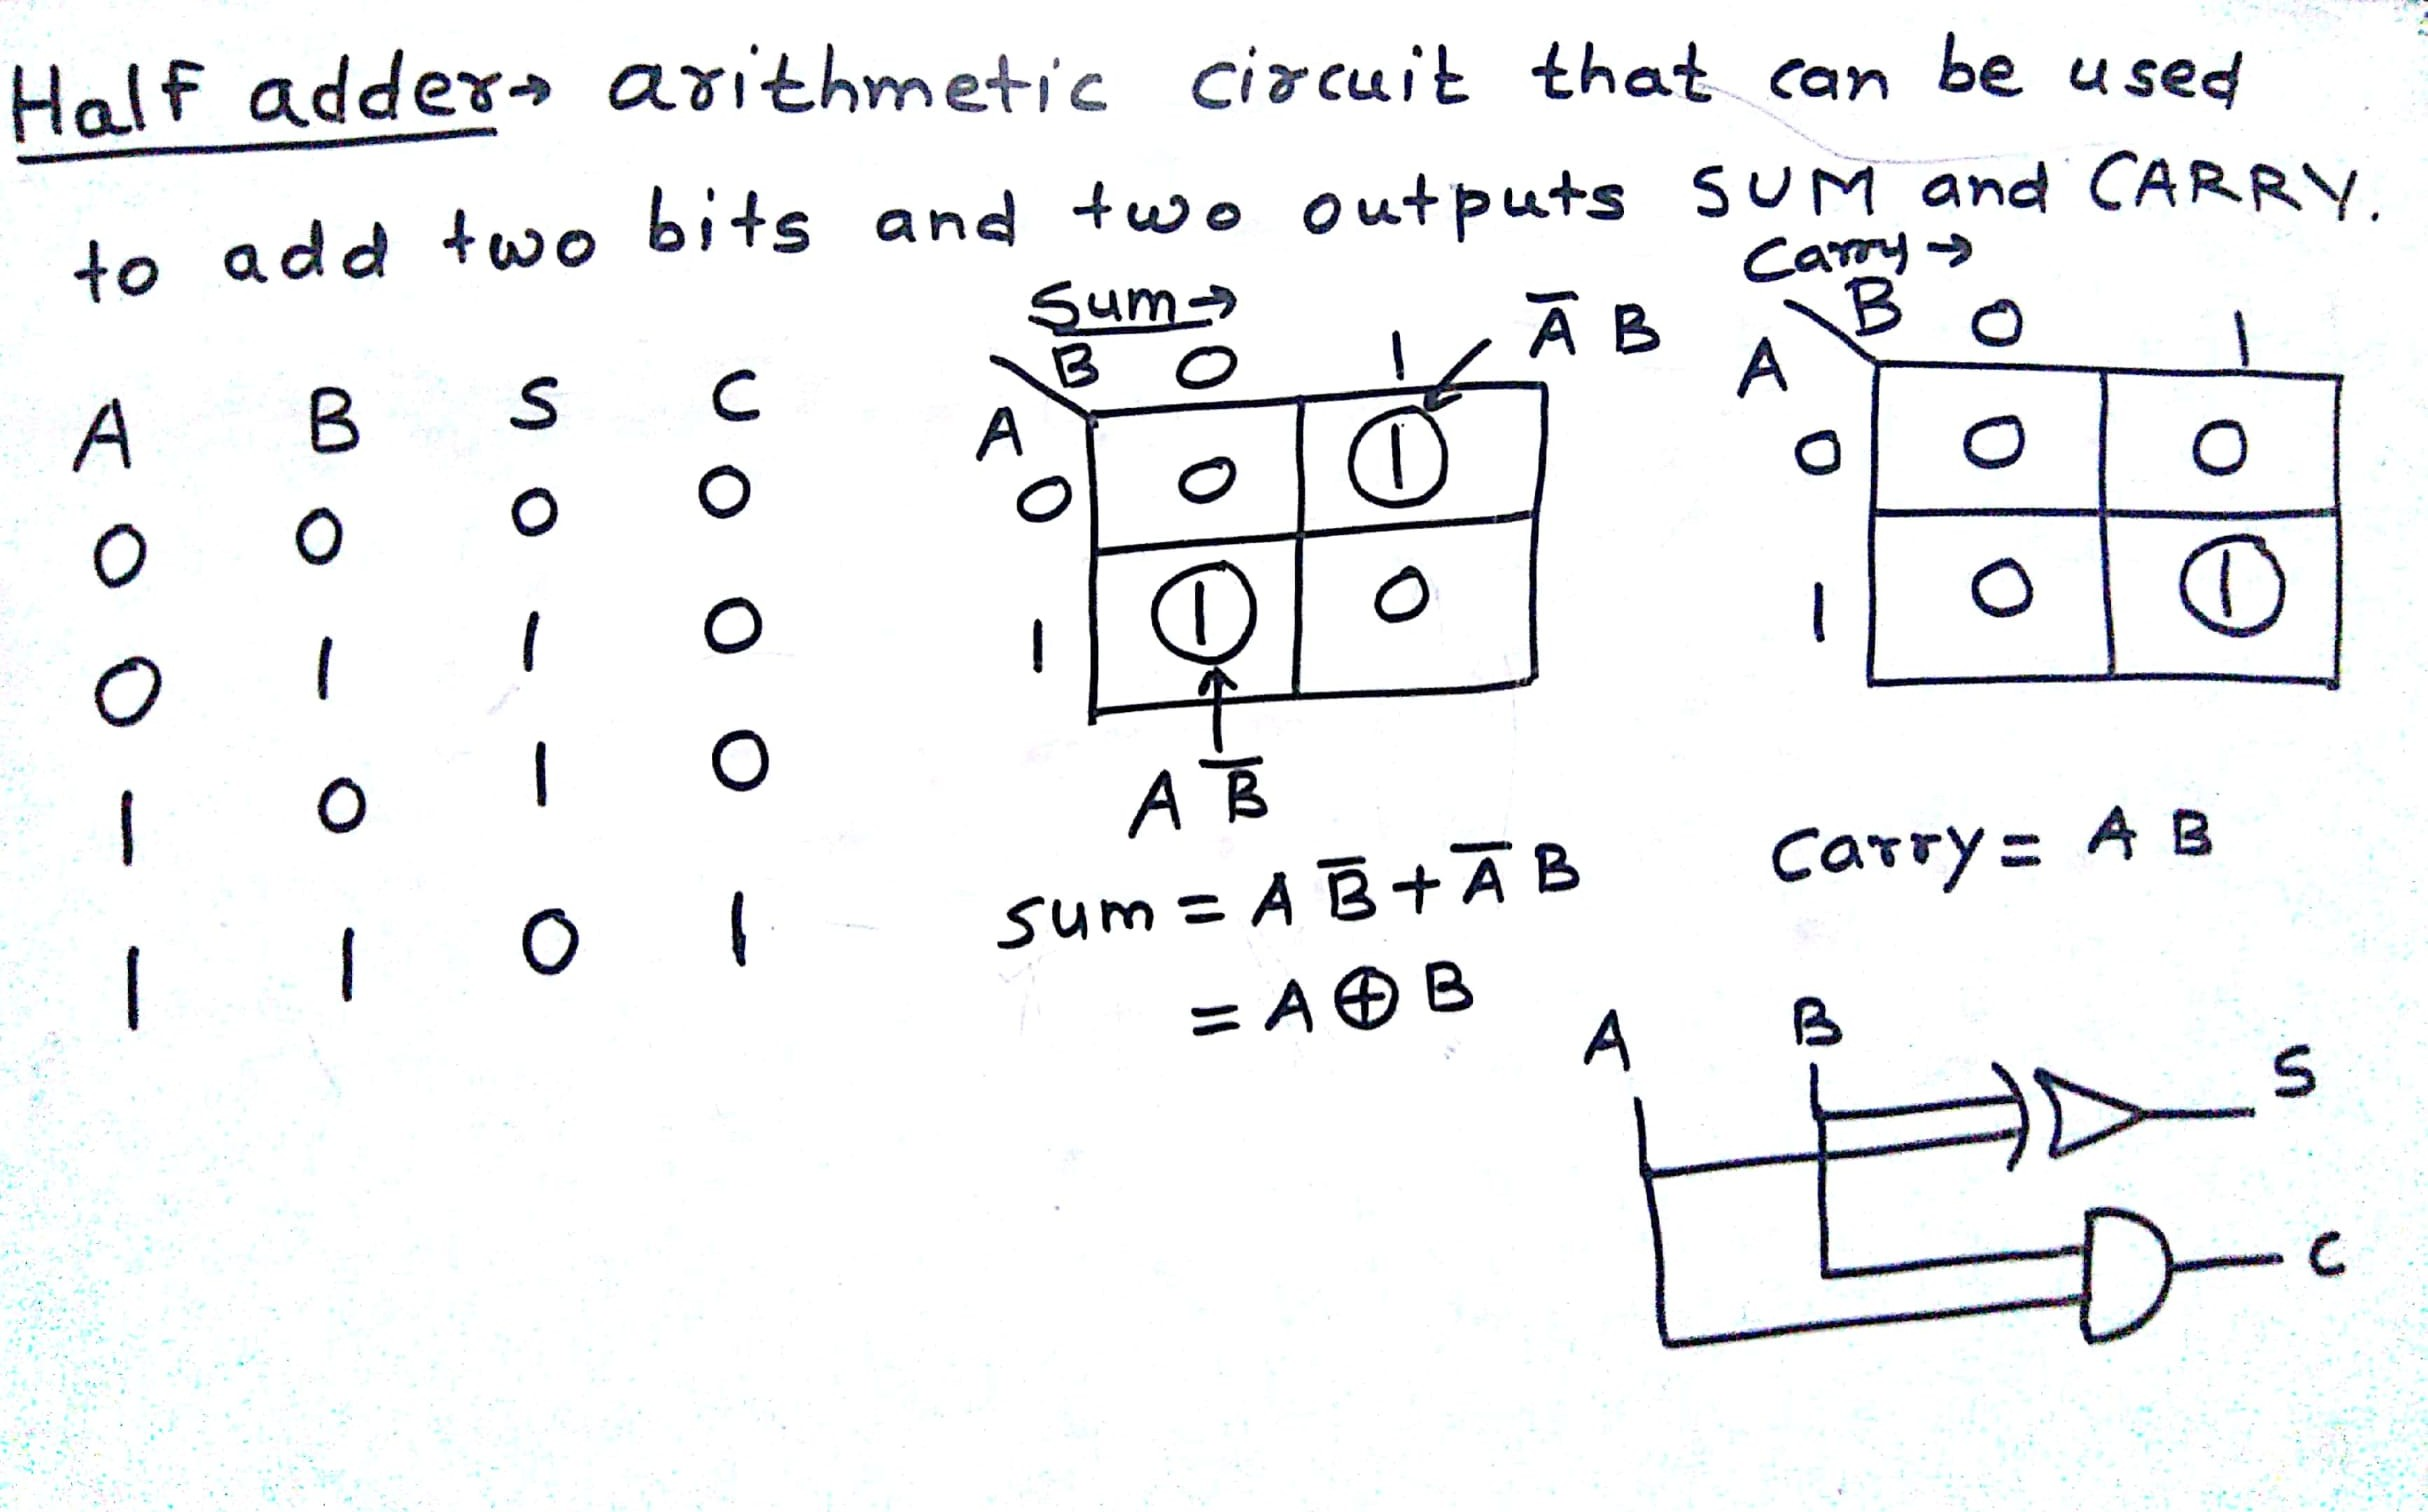 Half adder→ arithmetic circuit that can be used
to add two bits and two outputs SUM and CARRY.
A B S C
0 0 0 0
0 1 1 0
1 0 1 0
1 1 0 1
Sum→
B 0 1 A̅ B
A
0 0 1
1 1 0
A B̅
sum = A B̅ + A̅ B
= A ⊕ B
Carry→
B 0 1
A
0 0 0
1 0 1
Carry = A B
A B
S
C